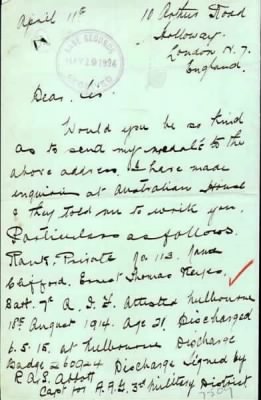 April 11th
10 Arthur Road
Holloway.
London N. 7.
England.
BASE RECORDS
MAY 19 1924
RECEIVED
Dear Sir
Would you be so kind
as to send my medals to the
above address. I have made
enquiries at Australian House
& they told me to write you.
Particulars as follows.
Rank. Private No. 113. Name
Clifford. Ernest Thomas Keyes.
Batt. 7th A. I. F. Attested Melbourne
18th August 1914. Age 21. Discharged
6.5.15. at Melbourne Discharge
Badge 26094 Discharge Signed by
R. A. S. Abbott
Capt for A. A. G. 3rd Military District